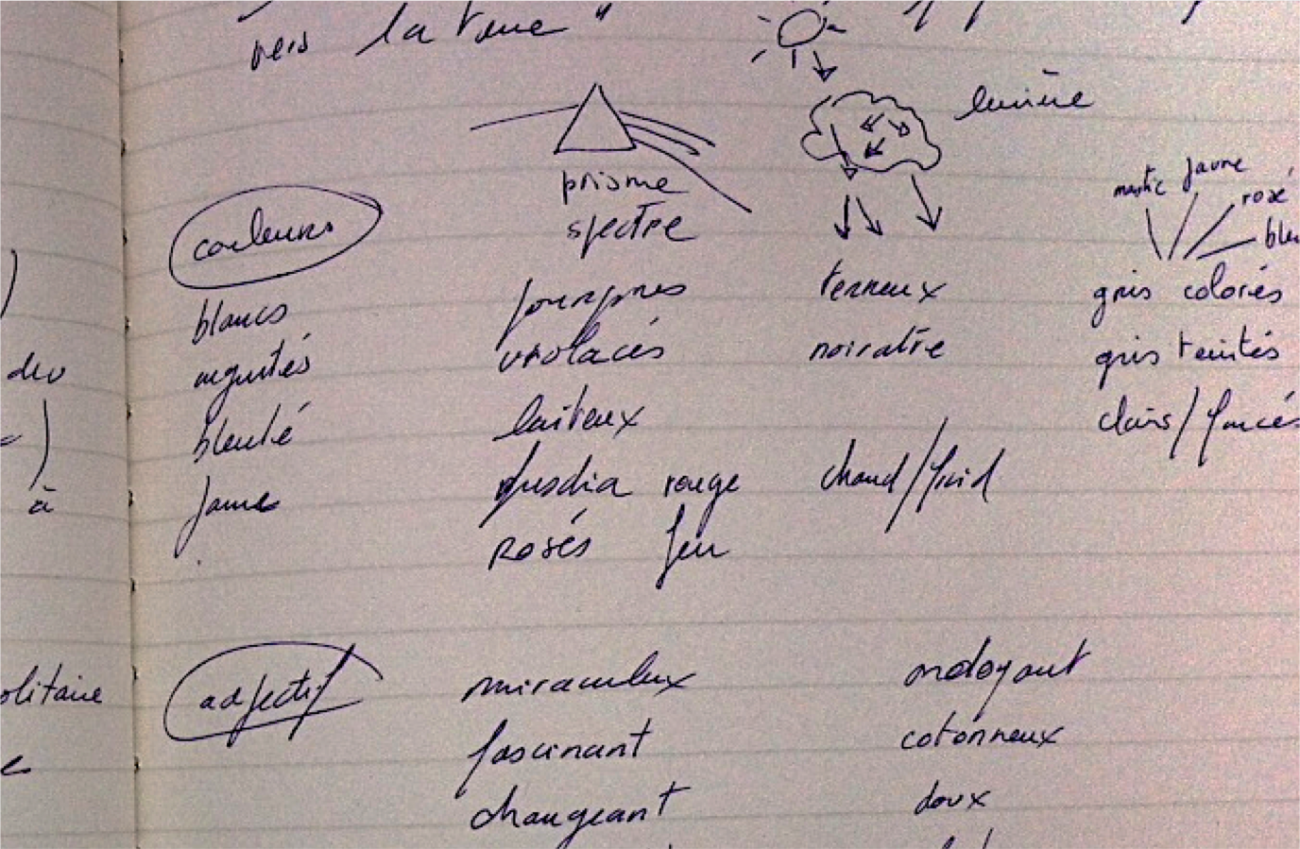 vers la terre "
lumière
prisme
spectre
mastic jaune rosé
couleurs
blancs
argentés
bleuté
jaune
pourpres
violacés
laiteux
fuschia rouge
rosés feu
terreux
noiratre
chaud/froid
gris colorés
gris teintés
clairs/foncés
deo
à
olitaire
adjectif
miraculeux
fascinant
changeant
ondoyant
cotonneux
doux